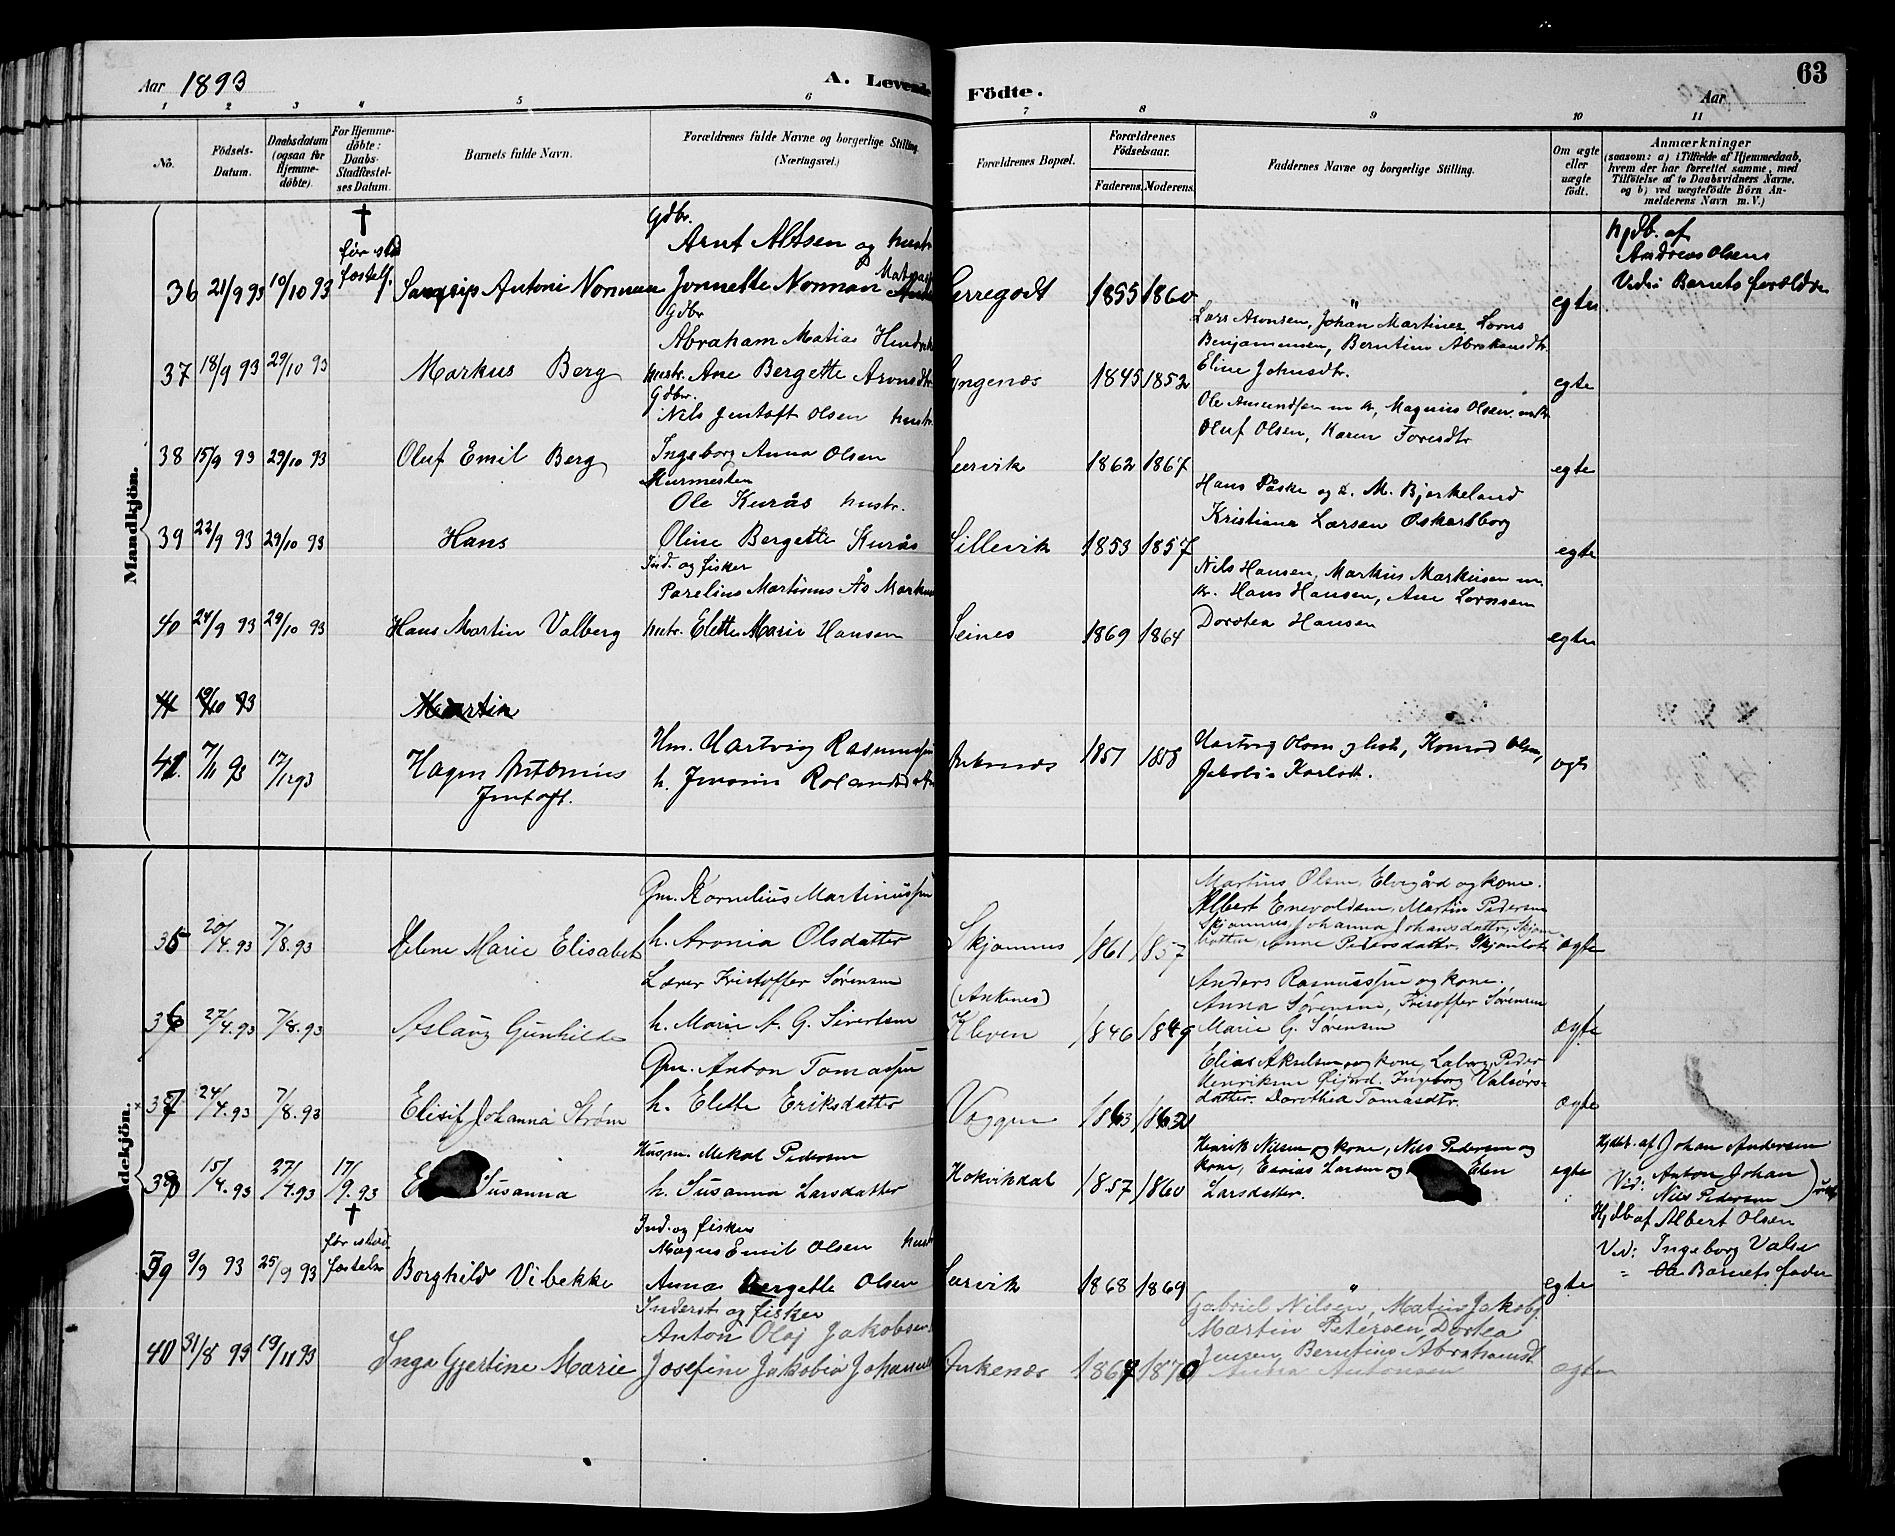 Aar 1893
A. Levende
Födte.
Aar
63
1 2 3 4 5 6 7 8 9 10 11
No.
Födsels-
Datum.
Daabsdatum
(ogsaa for
Hjemme-
döbte).
For Hjemme-
döbte:
Daabs-
Stadfæstel-
ses Datum.
Barnets fulde Navn.
Forældrenes fulde Navne og borgerlige Stilling
(Næringsvei.)
Forældrenes Bopæl.
Forældrenes
Födselsaar.
Faderens.
Moderens.
Faddernes Navne og borgerlige Stilling.
Om ægte
eller
uægte
födt.
Anmærkninger
(saasom: a) i Tilfælde af Hjemmedaab,
hvem der har forrettet samme, med
Tilföielse af to Daabsvidners Navne,
og b) ved uægtefödte Börn An-
melderens Navn m. V.)
Mandkjön.
†
før stad
fæstelse
Gdbr.
Arnt Altsen og hustr
36 21/9 93 19/10 93 Antoni Norman Jonnette Norman
1855 1860 egte
Hjdb. af
Andreas Olsens
Vidn: Barnets foreldre
Gdbr
Abraham Matias
37 18/9 93 29/10 93 Markus Berg hustr. Ane Bergette Aronsdtr
Lyngenæs 1845 1852
Lars Aronsen, Johan Martines Lorns
Benjamensen, Berntine Abrahamsdtr.
Eline Johnsdtr.
egte
Gdbr.
Nils Jentoft Olsen hustr.
38 15/9 93 29/10 93 Oluf Emil Berg Ingeborg Anna Olsen
Leervik 1862 1867
Ole Amundsen m k, Magnus Olsen
Oluf Olsen, Karen
egte
Murmester
Ole Kurås hustr.
39 22/9 93 29/10 93 Hans Oline Bergette Kurås
Lillevik 1853 1857
Hans Påske og L. M. Bjerkeland
Kristiana Larsen Oskarsborg
egte
Ind. og fisker
Parelius Martinus Ås
40 24/9 93 29/10 93 Hans Martin Valberg hustr. Elette Marie Hansen
Seines 1869 1864
Nils Hansen, Markus Markusen m.
k. Hans Hansen, Ane Lornsen
Dorotea Hansen
egte
41 19/10 93 Martin
41. 7/11 93 12/11 93 Hagen Antonius
Jentoft.
Hm. Hartvig Rasmussen
h.
Ankenæs 1851 1858
Hartvig Olsen og hust., Konrad Olsen,
egte
Kvindekjön.
Gm. Kornelius Martinussen
35 20/4.93 7/8.93 Helene Marie Elisabet h. Aronia Olsdatter
Skjomnes 1861 1857
Martins Olsen, Elvegård og kone.
Albert Enevoldsen, Martin Pedersen
Skjomnes, Johanna Johansdatter, Skjom-
botten, Anne Pedersdatter, Skjombotn
ægte
Lærer Kristoffer Sørensen
36 27/4.93 7/8.93 Aslaug Gunhilde h. Marie A. G. Sivertsen
(Ankenes)
Kleven 1846 1849
Anders Rasmussen og kone.
Anna Sørensen, Kristoffer Sørensen
Marie G. Sørensen
ægte
Gm. Anton Tomassen
37 24/4.93 7/8.93 Elisif Johanna Strøm h. Elette Eriksdatter
Væggen 1863 1862
Elias Akselsen og kone, Peder
Henriksen Ingeborg
datter. Dorothea Tomasdtr.
ægte
Husm. Mekal Pedersen
38 15/4.93 27/4.93 17/9.93 Susanna h. Susanna Larsdatter
1857 1860
Henrik Nilsen og kone, Nils Pedersen og
kone, Esaias Larsen og Elen
Larsdatter.
egte
Hjdbt. af Johan Andersen
Vid: Anton Johan
Nils Pedersen
†
før stad-
fæstelse
Ind. og fisker
Magnus Emil Olsen hust
39 9/9 93 25/9 93 Borghild Vibekke Anna Bergette Olsen
Leervik 1868 1869 " egte
Hjdb af Albert Olsen
Vid: Ingeborg
" Barnets fader
Inderst og fisker
Anton Olaj Jakobsen
40 31/8 93 19/11 93 Inga Gjertine Marie Josefine Jakobia
Ankenæs 1867 1870
Gabriel Nilsen, Matias Jakobs
Martin Petersen, Dortea
Jensen, Berntine Abrahamsd
Antonsen
ægte